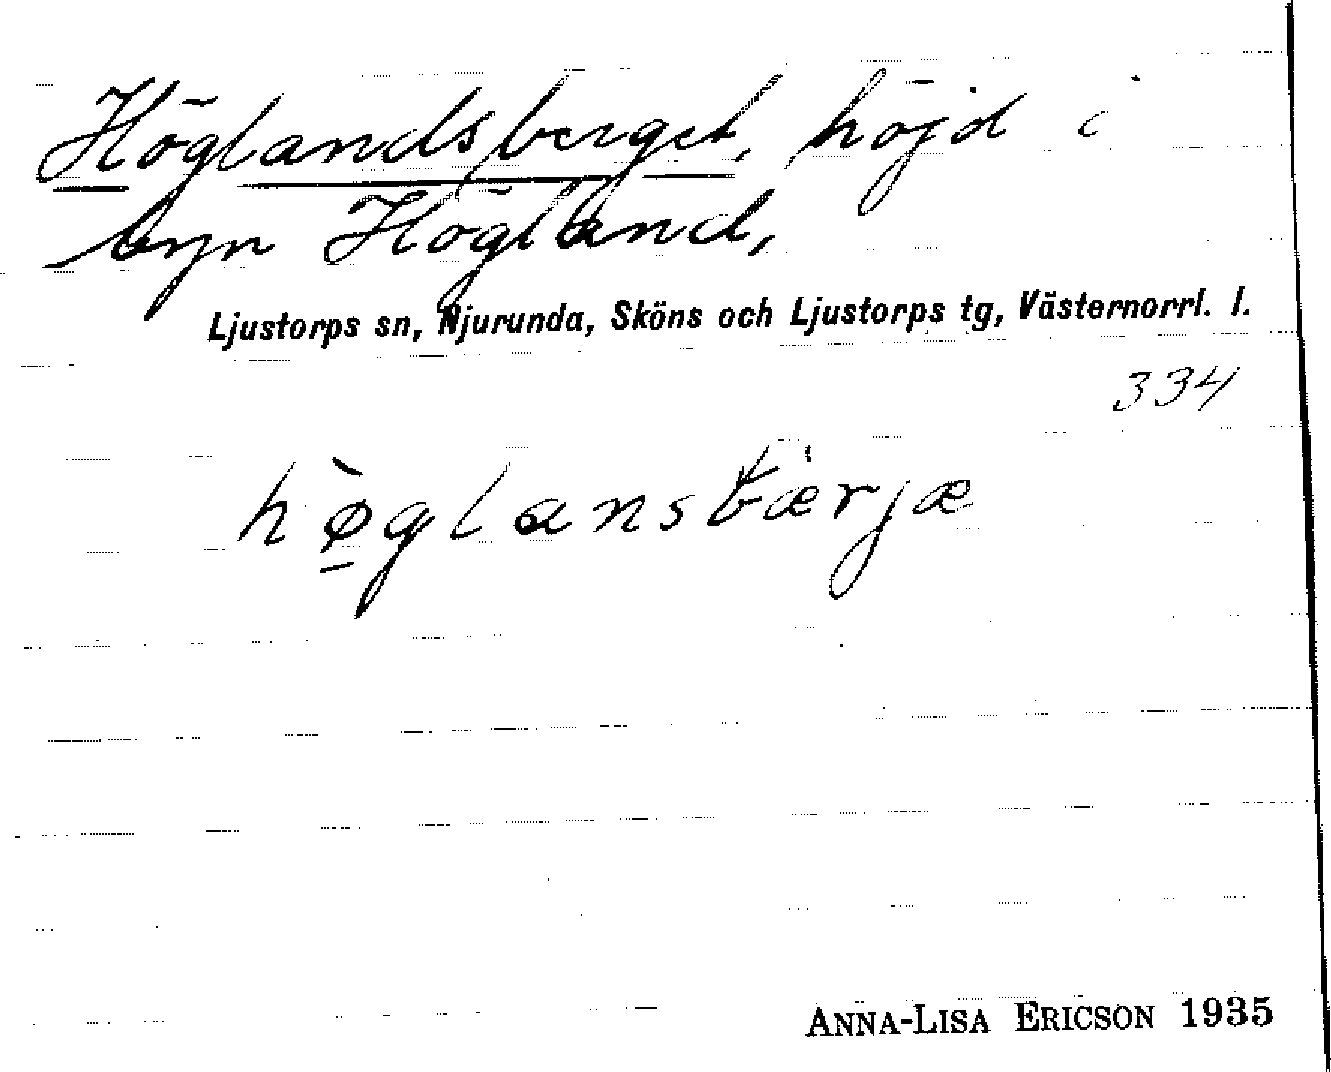 Höglandsberget, höjd i
byn Högland,
Ljustorps sn, Njurunda, Sköns och Ljustorps tg, Västernorrl. l.
334
hø̠̀glansbærjæ
ANNA-LISA ERICSON 1935